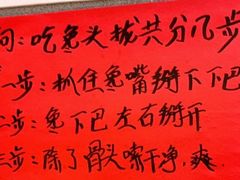 问:吃兔头拢共分几步
一步:抓住兔嘴掰下下巴
二步:兔下巴左右掰开
三步:除了骨头嗦干净,爽